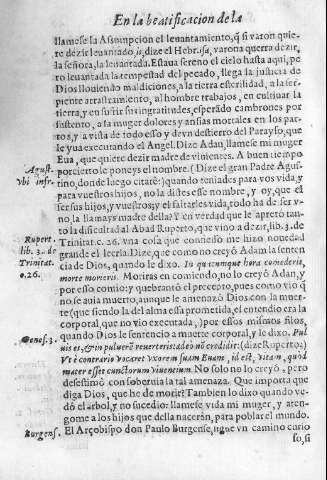 En la beatificacion de la
llamese la Assumpcion el leuantamiento, q̃ si varon quie-
re dezir leuantado is, dize el Hebr. isa, varona querra dezir,
la señora, la leuantada. Estaua sereno el cielo hasta aqui, pe
ro leuantada la tempestad del pecado, llega la justicia de
Dios llouiendo maldiciones, a la tierra esterilidad, a la ser-
piente arrastramiento, al hombre trabajos, en cultiuar la
tierra, y en sufrir sus ingratitudes, esperãdo cambrones por
sustento, a la muger dolores y ansias mortales en los par-
tos, y a vista de todo esso y deun destierro del Parayso, que
le yua executando el Angel. Dize Adan, llamese mi muger
Eua, que quiere dezir madre de viuientes. A buen tiempo
Agust. vbi infr.
por cierto le poneys el nombre. (Dize el gran Padre Agus-
tino, donde luego citarè:) quando teniades para vos vida, y
para vuestros hijos, no la distes esse nombre, y oy, que el
ser sus hijos, y vuestros; y el faltarles vida, todo ha de ser v-
no, la llamays madre della? Y en verdad que le apretò tan-
to la dificultad al Abad Ruperto, que vino a dezir, lib. 3. de
Rupert. lib. 3. de Trinitat. c. 26.
Trinitat. c. 26. vna cosa que conmigo me hizo nouedad
grande el leerla. Dize, que como no creyò Adam la senten
cia de Dios, quando le dixo. In quacumque hora comederis,
morte morieris. Moriras en comiendo, no le creyò Adan, y
por esso comio: y quebrantò el precepto, pues como viò q̃
no se auia muerto, aunque le amenazò Dios con la muer-
te (que siendo la del alma essa prometida, el entendio era la
corporal, que no vio executada, ) por essos mismos filos,
quando Dios le sentenciò a muerte corporal, y le dixo. Pul
Genes. 3.
uis es, & in puluerē reuerteris: adeò nõ credidit: (dize Ruperto:)
Vt è contrario vocaret vxorem suam Euam, id est, vitam, quòd
mater esset cunctorum viuentium. No solo no lo creyò, pero
desestimò con soberuia la tal amenaza. Que importa que
diga Dios, que he de morir? Tambien lo dixo quando ve-
dò el arbol, y no sucedio: llamese vida mi muger, y aten-
gome a los hijos que della nacerán, para poblar el mundo.
Burgens.
El Arçobispo don Paulo Burgense, sigue vn camino curio
so, si